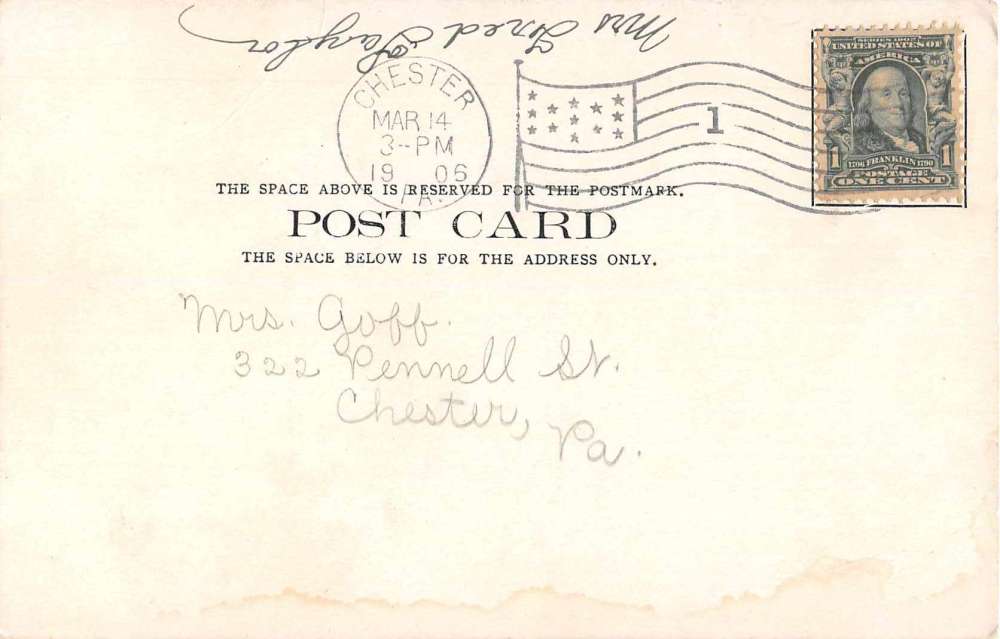 Mrs Fred Taylor
CHESTER
MAR 14
3-PM
19 06
PA.
1
SERIES 1902
UNITED STATES OF
AMERICA
1706 FRANKLIN 1790
1 1
POSTAGE
ONE CENT
THE SPACE ABOVE IS RESERVED FOR THE POSTMARK.
POST CARD
THE SPACE BELOW IS FOR THE ADDRESS ONLY.
Mrs. Goff.
322 Pennell St.
Chester,
Pa.